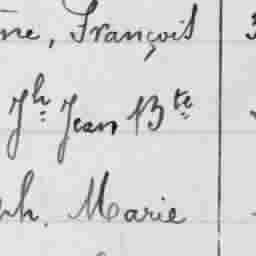 ne, François
Jh Jean Bte
ph. Marie